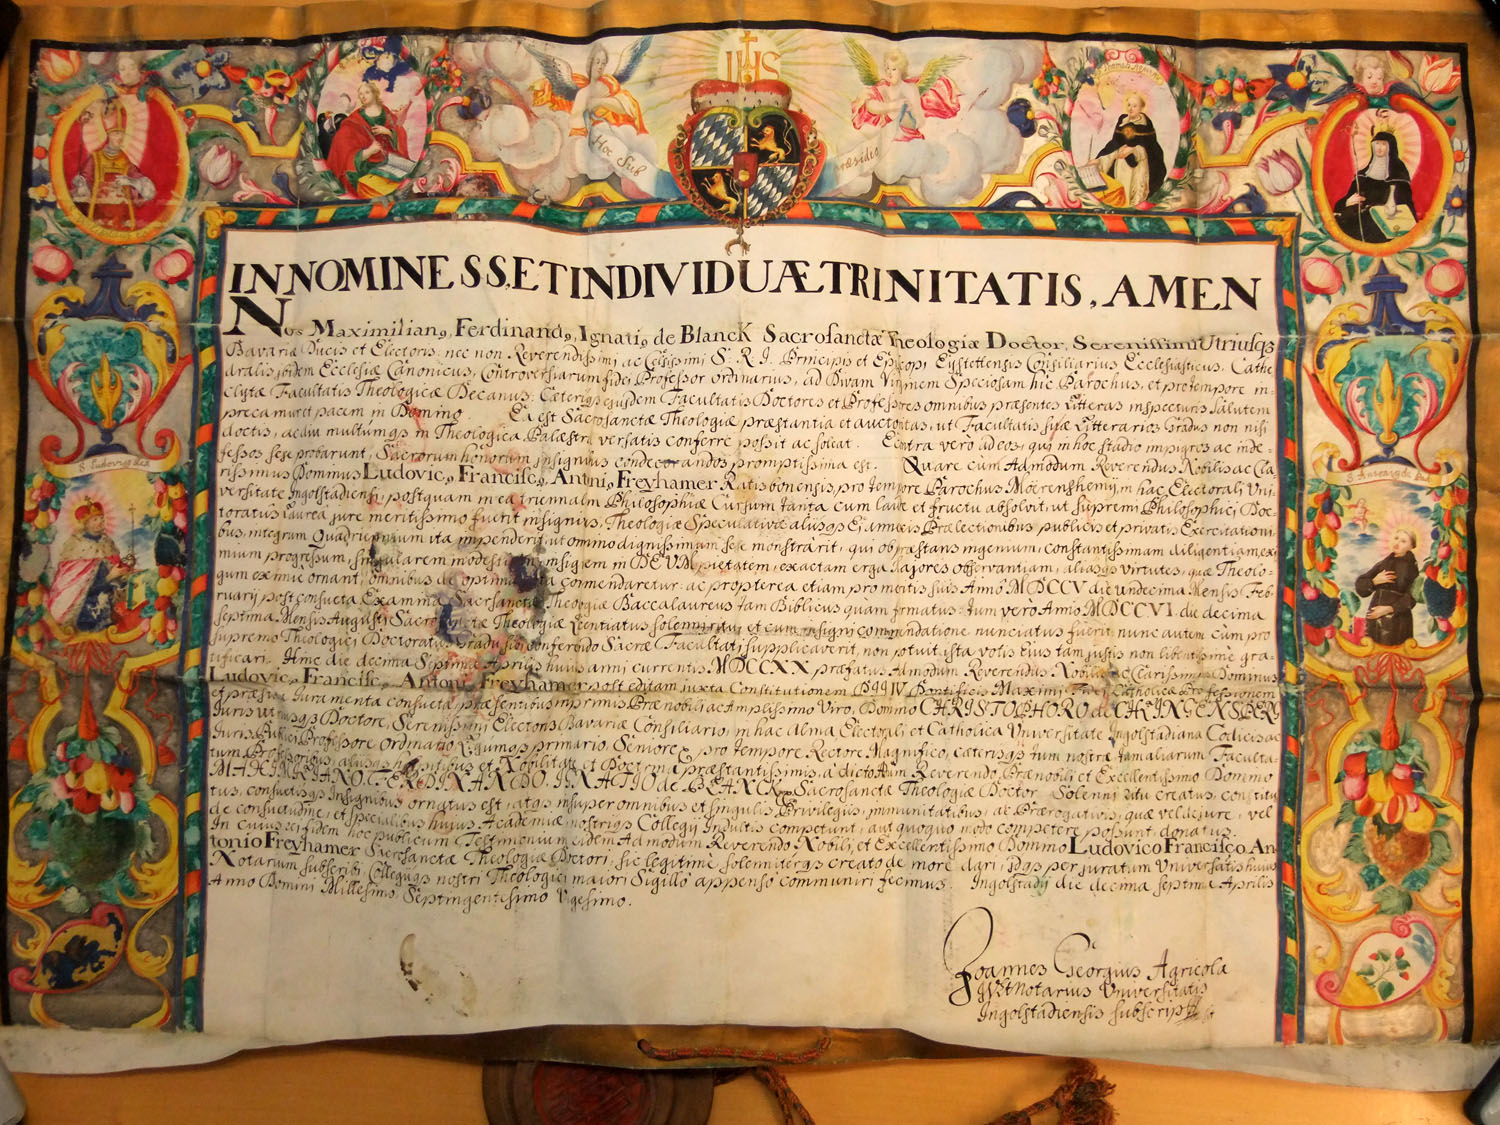 IHS
S. Thomas Aquin
Hoc Sub
Præsidio
IN NOMINE SS, ET INDIVIDUÆ TRINITATIS, AMEN
Nos Maximilian9, Ferdinand9, Ignati9 de Blanck Sacrosanctæ Theologiæ Doctor, Serenissimi Utriusq3
Bavariæ Ducis et Electoris, nec non Reverendissimi, ac Celsissimi S. R. I. Principis et Episcopi Eystettensis Consiliarius Ecclesiasticus, Cathe
dralis ibidem Ecclesiæ Canonicus, Controversiarum fidei Professor ordinarius, ad Divam Virginem Speciosam hic Parochus, et pro tempore in-
clytæ Facultatis Theologicæ Decanus, Cæteriq3 ejusdem Facultatis Doctores et Professores omnibus præsentes Litteras inspecturis Salutem
precamur et pacem in Domino. Ea est Sacrosanctæ Theologiæ præstantia et auctoritas, ut Facultatis suæ Litterarios Gradus non nisi
doctis, ac diu multumq3 in Theologica Palæstra versatis conferre possit ac soleat. Contra verò ad eos, qui in hoc stadio impigros ac inde-
fessos sese probarunt, Sacrorum honorum insignibus condecorandos promptissima est. Quare cum Admodum Reverendus Nobilis ac Cla-
rissimus Dominus Ludovic9 Francisc9 Anton9 Freyhamer Ratisbonensis, pro tempore Parochus Moerenshemij, in hac Electorali Uni-
versitate Ingolstadiensi, postquam in ea triennalem Philosophiæ Cursum tanta cum laude et fructu absolvit, ut supremi Philosophici Doc-
toratus Laurea jure meritissimo fuerit insignitus, Theologiæ Speculativæ aliisq3 Ei Annexis Prælectionibus publicis et privatis Exercitationi
bus, integrum Quadriennium ita impenderit, ut omnino dignissimum sese monstrarit, qui ob præstans ingenium, constantissimam diligentiam, exi
mium progressum, singularem modestiam insignem in DEUM pietatem, exactam erga Majores observantiam, aliasq3 virtutes, quæ Theolo-
gum eximie ornant, omnibus de optima commendaretur: ac propterea etiam pro meritis suis Anno MDCCV die undecima Mensis Feb-
ruarij post consueta Examina Sacrosanctæ Theologiæ Baccalaureus tam Biblicus quam formatus: tum vero Anno MDCCVI die decima
septima Mensis Augusti Sacrosanctæ Theologiæ Licentiatus solenniter, et cum insigni commendatione nunciatus fuerit: nunc autem cum pro
supremo Theologici Doctoratus Gradu sibi conferendo Sacræ Facultati supplicaverit, non potuit ista votis Eius tam justis non libentissime gra-
tificari. Hinc die decima Septima Aprilis huius anni currentis MDCCXX præfatus Admodum Reverendus Nobilis ac Clarissimus Dominus
Ludovic9 Francisc9 Anton9 Freyhamer post editam juxta Constitutionem PII IV Pontificis Maximi Fidei Catholicæ Professionem
et præstita Juramenta consueta præsentibus imprimis Prænobili ac Amplissimo Viro, Domino CHRISTOPHORO de CHLINGENSPERG
Juris utriusq3 Doctore, Serenissimi Electoris Bavariæ Consiliario, in hac Alma Electorali et Catholica Universitate Ingolstadiana Codicis ac
Juris Publici Professore Ordinario Legumq3 primario, Seniore, pro tempore Rectore Magnifico, cæterisq3 tum nostræ tum aliarum Faculta-
tum Professoribus, aliisq3 et Nobilitate et Doctrina præstantissimis, à dicto Adm Reverendo, Prænobili et Excellentissimo Domino
MAXIMILIANO, FERDINANDO, IGNATIO de BLANCK Sacrosanctæ Theologiæ Doctor Solenni ritu creatus, constitu
tus, consuetisq3 Insignibus ornatus est, atq3 insuper omnibus et singulis Privilegiis, immunitatibus, ac Prærogativis, quæ vel de jure, vel
de consuetudine, et specialibus hujus Academiæ nostriq3 Collegij Indultis competunt, aut quoquo modo competere possunt donatus.
In cuius rei fidem hoc publicum Testimonium eidem Admodum Reverendo Nobili, et Excellentissimo Domino Ludovico Francisco An
tonio Freyhamer Sacrosanctæ Theologiæ Doctori, sic legitimè solenniterq3 creato de more dari, idq3 per juratum Universitatis huius
Notarium subscribi Collegijq3 nostri Theologici maiori Sigillo appenso communiri fecimus. Ingolstadij die decima septima Aprilis
Anno Domini Millesimo, Septingentesimo Vigesimo.
S. Ludovicus Rex
S. Franciscus
Joannes Georgius Agricola
Notarius Universitatis
Ingolstadiensis subscripsit